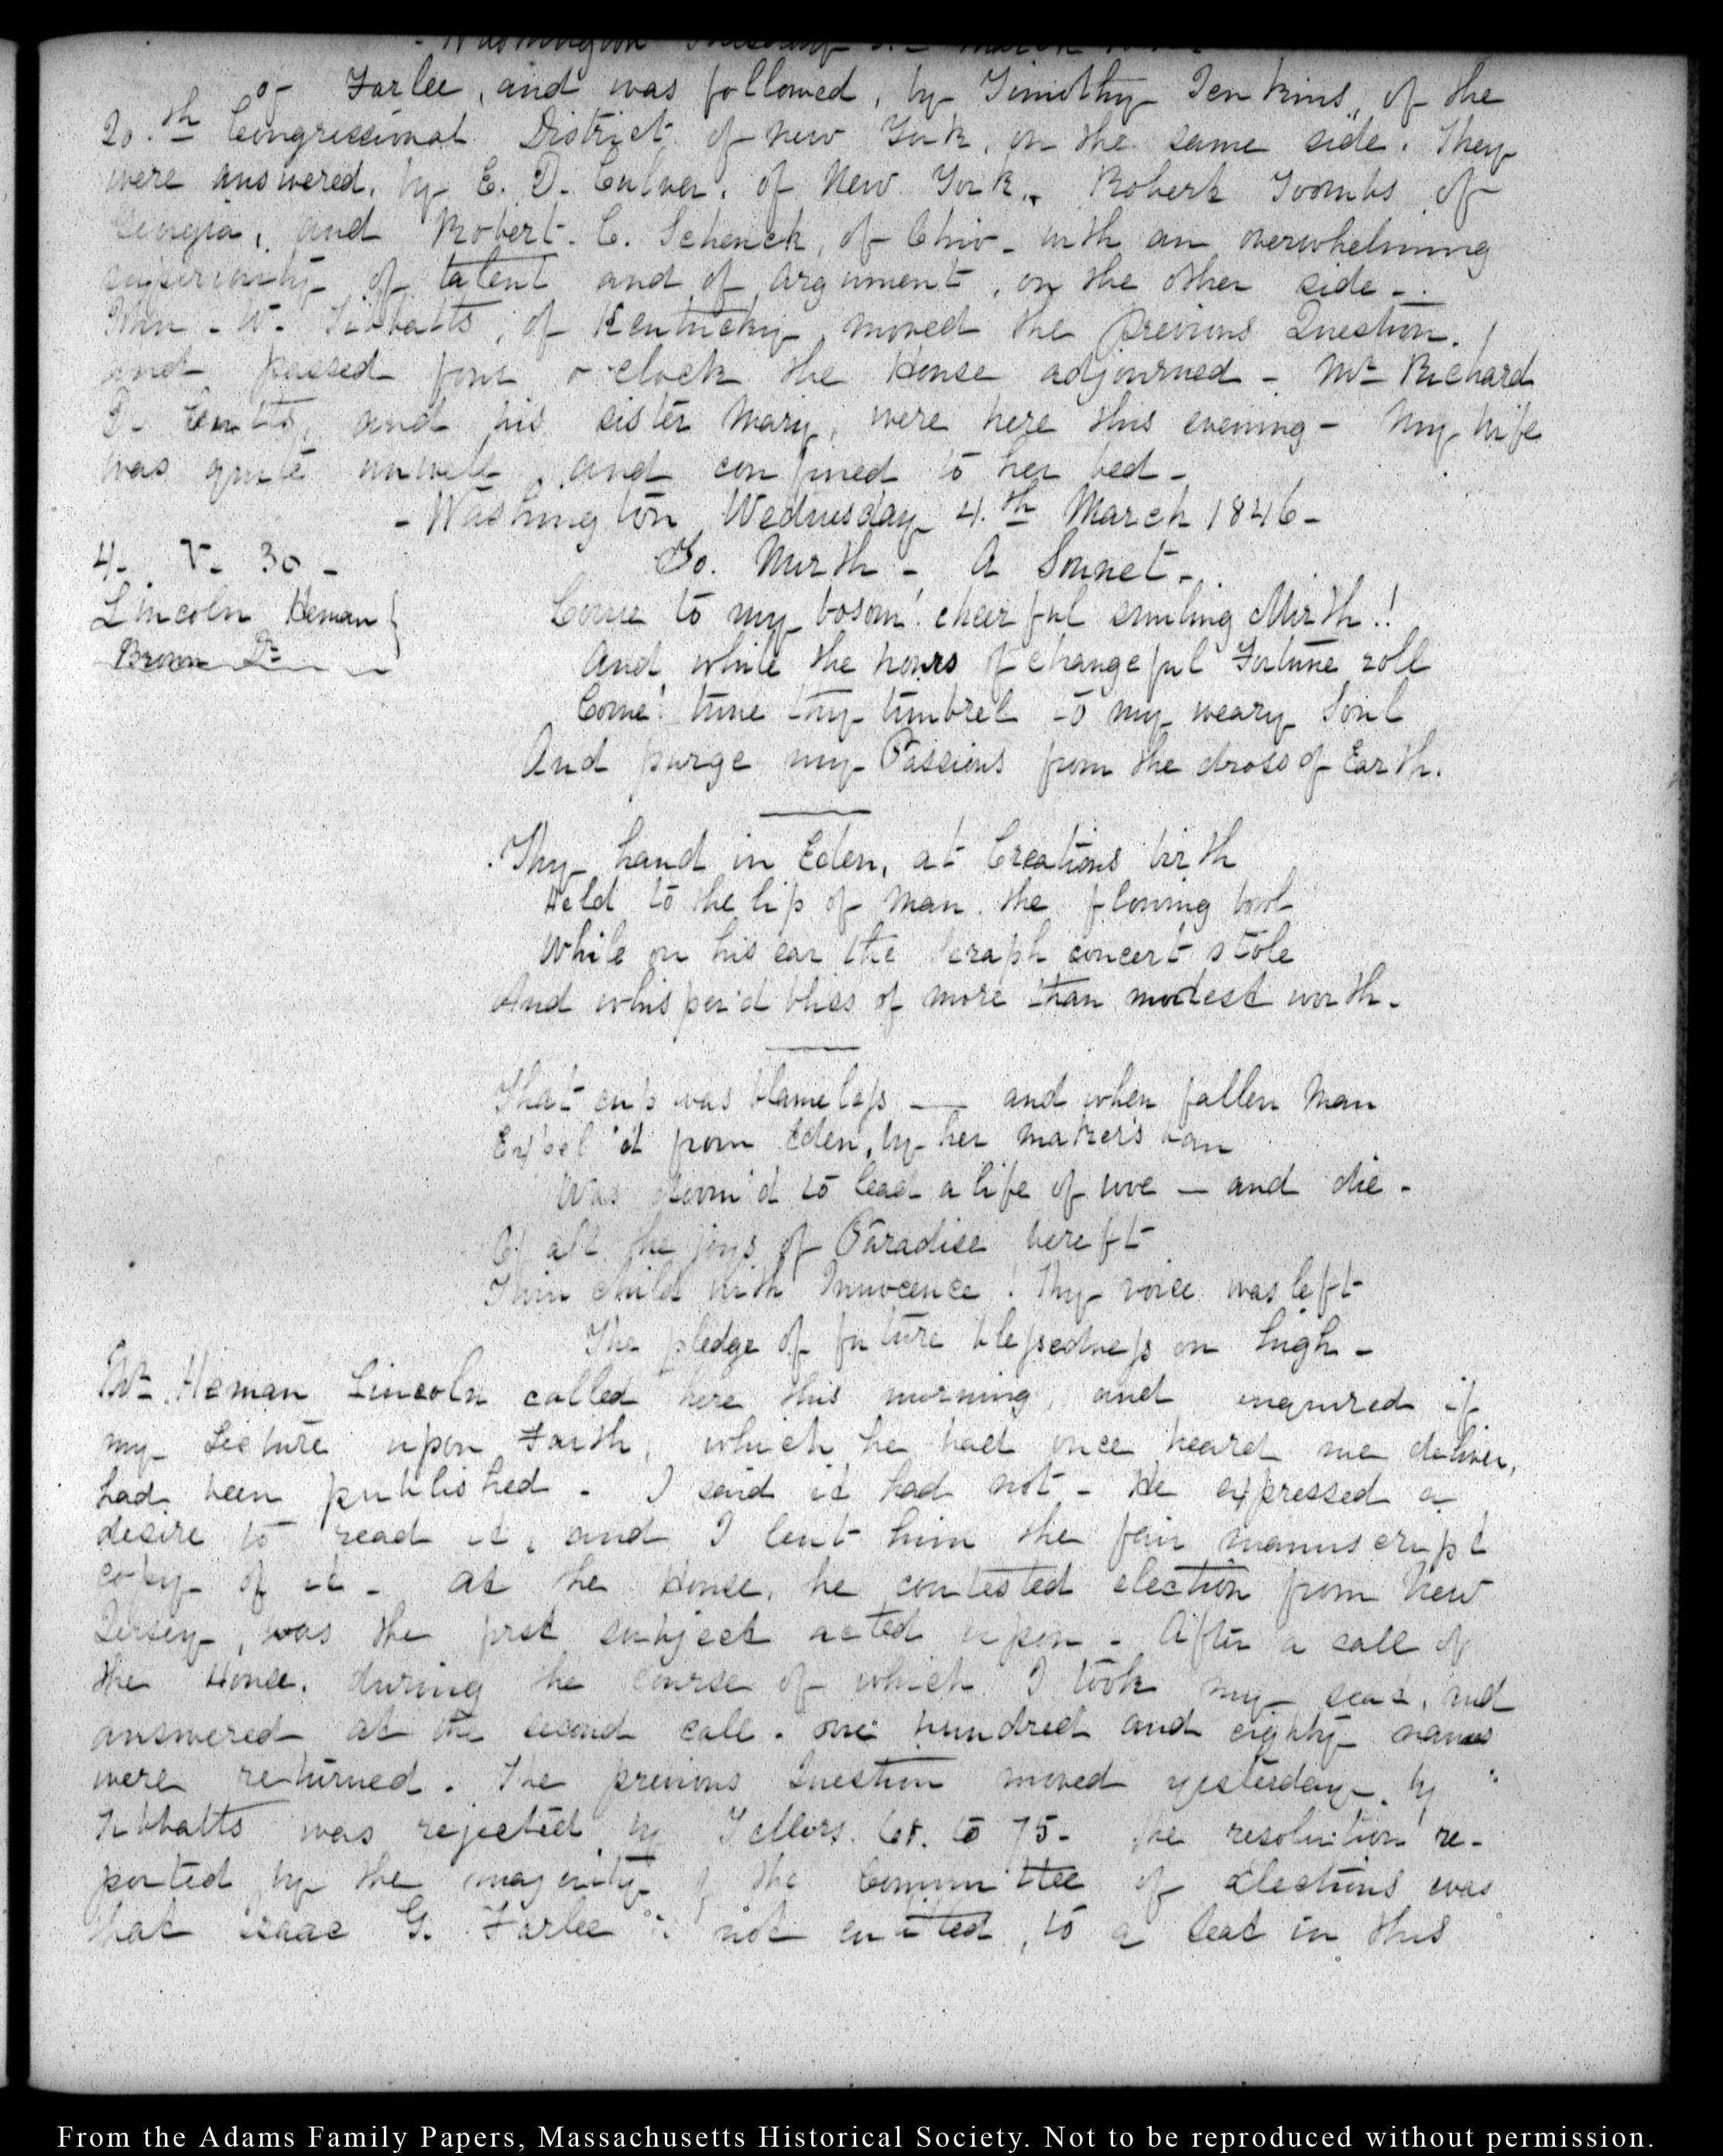 - Washington Tuesday 3. March 1846-
of Farlee, and was followed, by Timothy Jenkins, of the
20.th Congressional District of New York, on the same side. They
were answered, by E. D. Culver, of New York, Robert Toombs of
Georgia, and Robert C. Schenck, of Ohio - with an overwhelming
superiority of talent and of argument, on the other side -
John W. Tibbatts, of Kentucky moved the previous Question.
and passed four o'clock the House adjourned - Mr. Richard
D. Cutts, and his sister Mary, were here this evening - My wife
was quite unwell, and confined to her bed -
- Washington Wednesday 4.th March 1846 -
4. V. 30 -
Lincoln Heman }
Brown Dr
To Mirth - A Sonnet -
Come to my bosom! cheerful smiling Mirth!!
And while the hours of changeful Fortune roll
Come! tune thy timbrel to my weary Soul
And purge my Passions from the dross of Earth.
Thy hand in Eden, at Creations birth
Held to the lip of man the flowing bowl
While on his ear the Seraph concert stole
And whisper'd bliss of more than modest worth.
That cup was blameless — and when fallen Man
Expel'd from Eden, by her maker's ban
Was doom'd to lead a life of woe — and die -
Of all the joys of Paradise bereft
Twin child with Innocence! Thy voice was left
The pledge of future blessedness on high -
Mr. Heman Lincoln called here this morning, and enquired if
my Lecture upon Faith, which he had once heard me deliver,
had been published - I said it had not - He expressed a
desire to read it, and I lent him the fair manuscript
copy of it - At the House, the contested election from New
Jersey, was the first subject acted upon - After a call of
the House, during the course of which I took my seat, and
answered at the second call. one hundred and eighty names
were returned. The previous Question moved yesterday by
Tibbatts was rejected by Tellers. to 75 - the resolution re-
ported by the majority of the Committee of Elections was
that Isaac G. Farlee is not entitled, to a seat in this
From the Adams Family Papers, Massachusetts Historical Society. Not to be reproduced without permission.